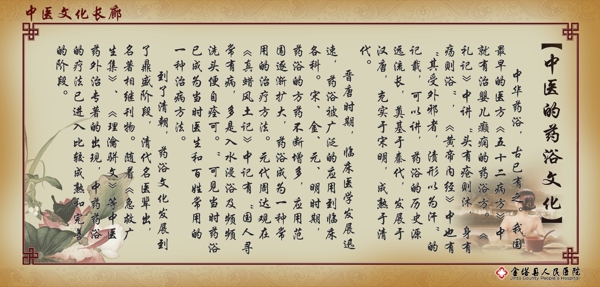 中医文化长廊
【中医的药浴文化】
中华药浴，古已有之，我国
最早的医方《五十二病方》中
就有治婴儿癫痫的药浴方。《
礼记》中讲“头有疮则沐，身有
疡则浴”，《黄帝内经》中也有
“其受外邪者，渍形以为汗”的
记载。可以讲，药浴的历史源
远流长，奠基于秦代，发展于
汉唐，充实于宋明，成熟于清
代。
晋唐时期，临床医学发展迅
速，药浴被广泛的应用到临床
各科。宋、金、元、明时期，
药浴的方药不断增多，应用范
围逐渐扩大，药浴成为一种常
用的治疗方法。元代周达观在
《真蜡风土记》中记有“国人寻
常有病，多是入水浸浴及频频
洗头便自痊可。”可见当时药浴
已成为当时医生和百姓常用的
一种治病方法。
到了清朝，药浴文化发展到
了鼎盛阶段，清代名医辈出，
名著相继刊物。随着《急救广
生集》、《理瀹骈文》等中医
药外治专著的出现，中药药浴
的疗法已进入比较成熟和完善
的阶段。
金塔县人民医院
Jinta County People's Hospital